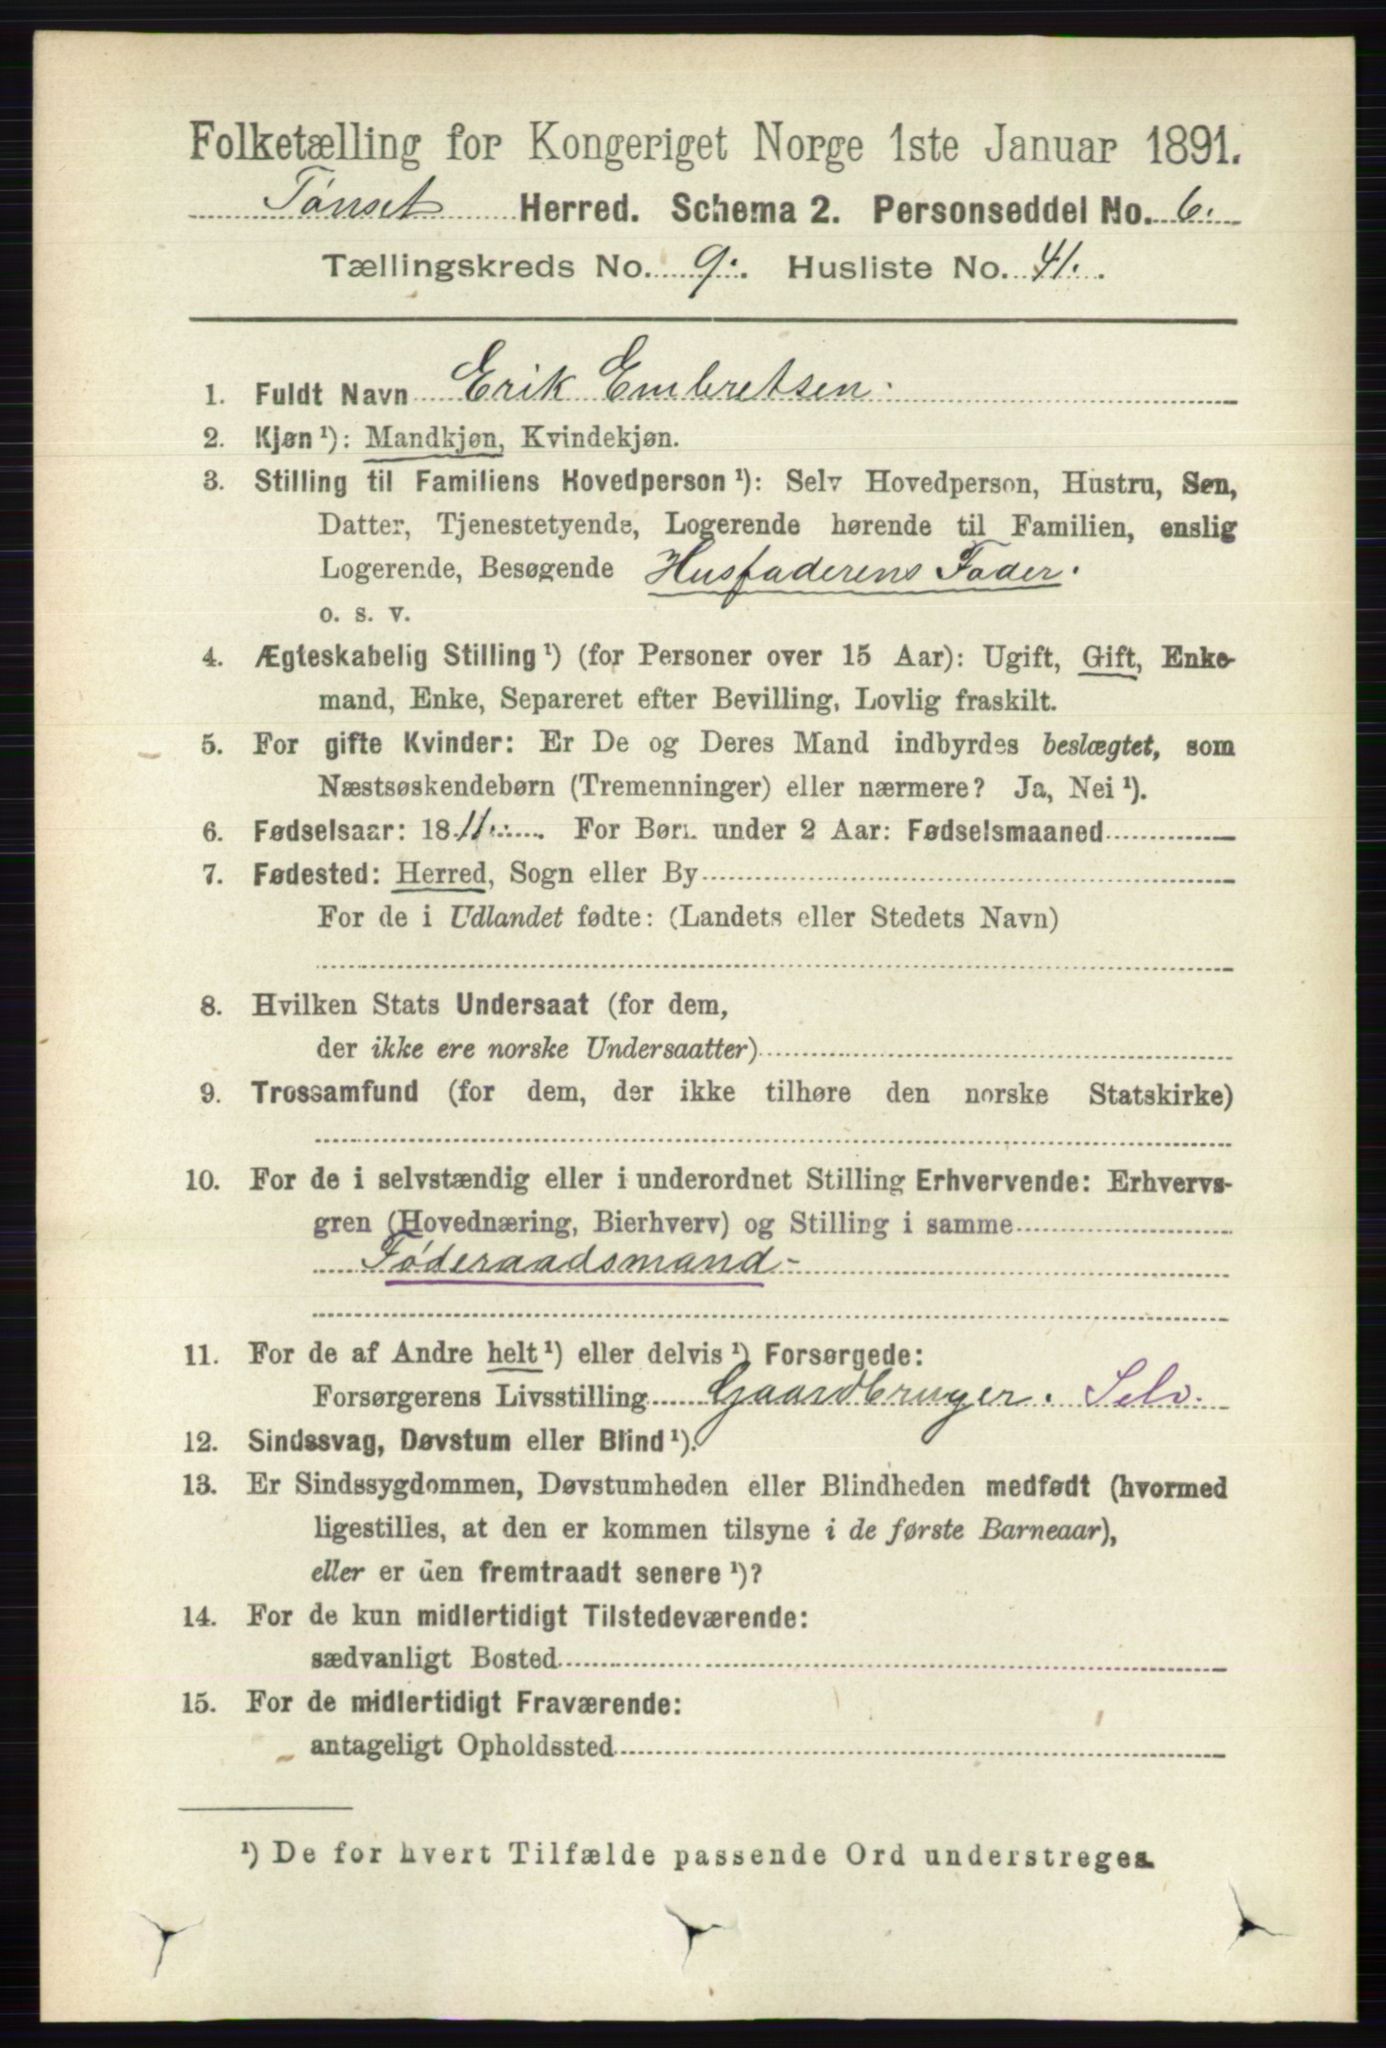 Folketælling for Kongeriget Norge 1ste Januar 1891.
Tønset Herred. Schema 2. Personseddel No. 6.
Tællingskreds No. 9. Husliste No. 41.
1. Fuldt Navn Erik Embretsen.
2. Kjøn¹): Mandkjøn, Kvindekjøn.
3. Stilling til Familiens Hovedperson¹): Selv Hovedperson, Hustru, Søn,
Datter, Tjenestetyende, Logerende hørende til Familien, enslig
Logerende, Besøgende Husfaderens Fader.
o. s. v.
4. Ægteskabelig Stilling¹) (for Personer over 15 Aar): Ugift, Gift, Enke-
mand, Enke, Separeret efter Bevilling, Lovlig fraskilt.
5. For gifte Kvinder: Er De og Deres Mand indbyrdes beslægtet, som
Næstsøskendebørn (Tremenninger) eller nærmere? Ja, Nei¹).
6. Fødselsaar: 1811. For Børn under 2 Aar: Fødselsmaaned
7. Fødested: Herred, Sogn eller By
For de i Udlandet fødte: (Landets eller Stedets Navn)
8. Hvilken Stats Undersaat (for dem,
der ikke ere norske Undersaatter)
9. Trossamfund (for dem, der ikke tilhøre den norske Statskirke)
10. For de i selvstændig eller i underordnet Stilling Erhvervende: Erhvervs-
gren (Hovednæring, Bierhverv) og Stilling i samme
Føderaadsmand -
11. For de af Andre helt¹) eller delvis¹) Forsørgede:
Forsørgerens Livsstilling Gaardbruger. Selv.
12. Sindssvag, Døvstum eller Blind¹).
13. Er Sindssygdommen, Døvstumheden eller Blindheden medfødt (hvormed
ligestilles, at den er kommen tilsyne i de første Barneaar),
eller er den fremtraadt senere¹)?
14. For de kun midlertidigt Tilstedeværende:
sædvanligt Bosted
15. For de midlertidigt Fraværende:
antageligt Opholdssted
¹) De for hvert Tilfælde passende Ord understreges.